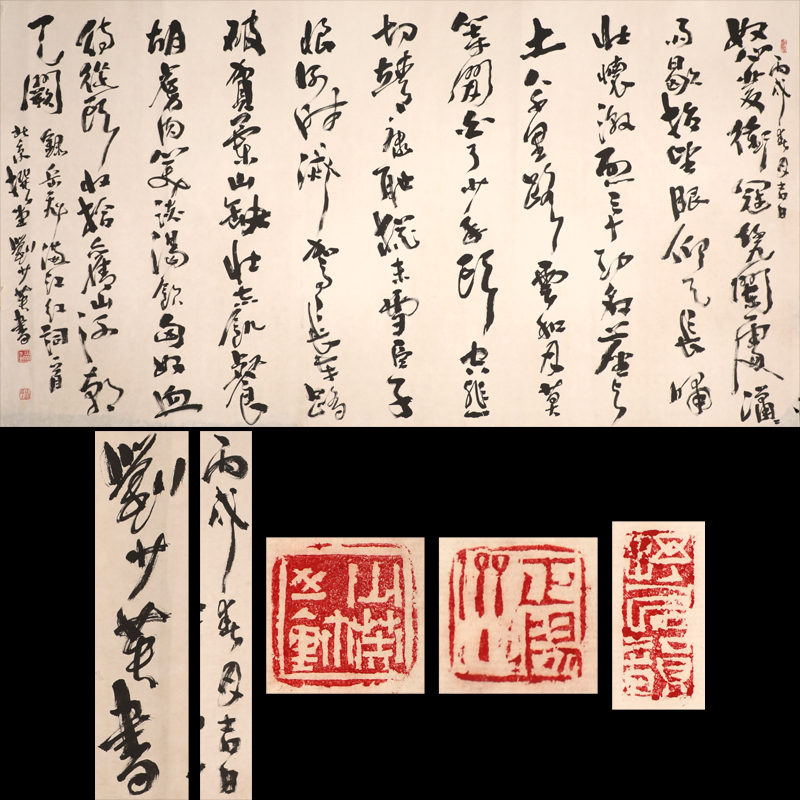 丙戌春月吉日
怒髮衝冠凭闌處瀟〻
雨歇抬望眼仰天長嘯
壯懷激烈三十功名塵与
土八千里路雲和月莫
等閒白了少年頭空悲
切靖康耻猶未雪臣子
恨何時滅駕長車踏
破賀蘭山缺壯志飢餐
胡虜肉笑談渴飲匈奴血
待從頭收拾舊山河朝
天闕
錄岳飛滿江紅詞一首
北京 劉少英書
劉少英書
丙戌春月吉日